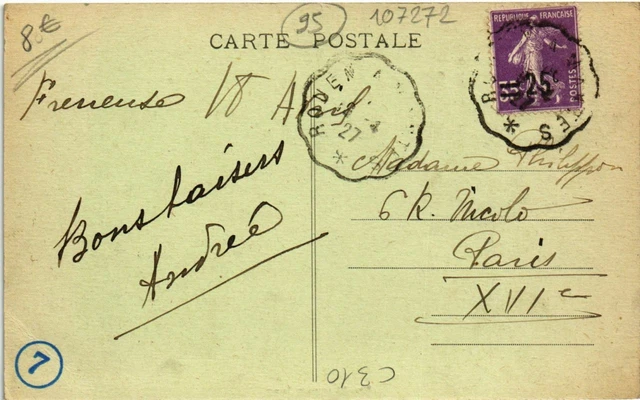 8.€
95
107272
CARTE POSTALE
REPUBLIQUE FRANÇAISE
POSTES
25
Freneuse 18 Avril
ROUEN A
27
Madame Philippon
Bons baisers
6 R. Nicolo
Andrée
Paris
XVIe
7
C310